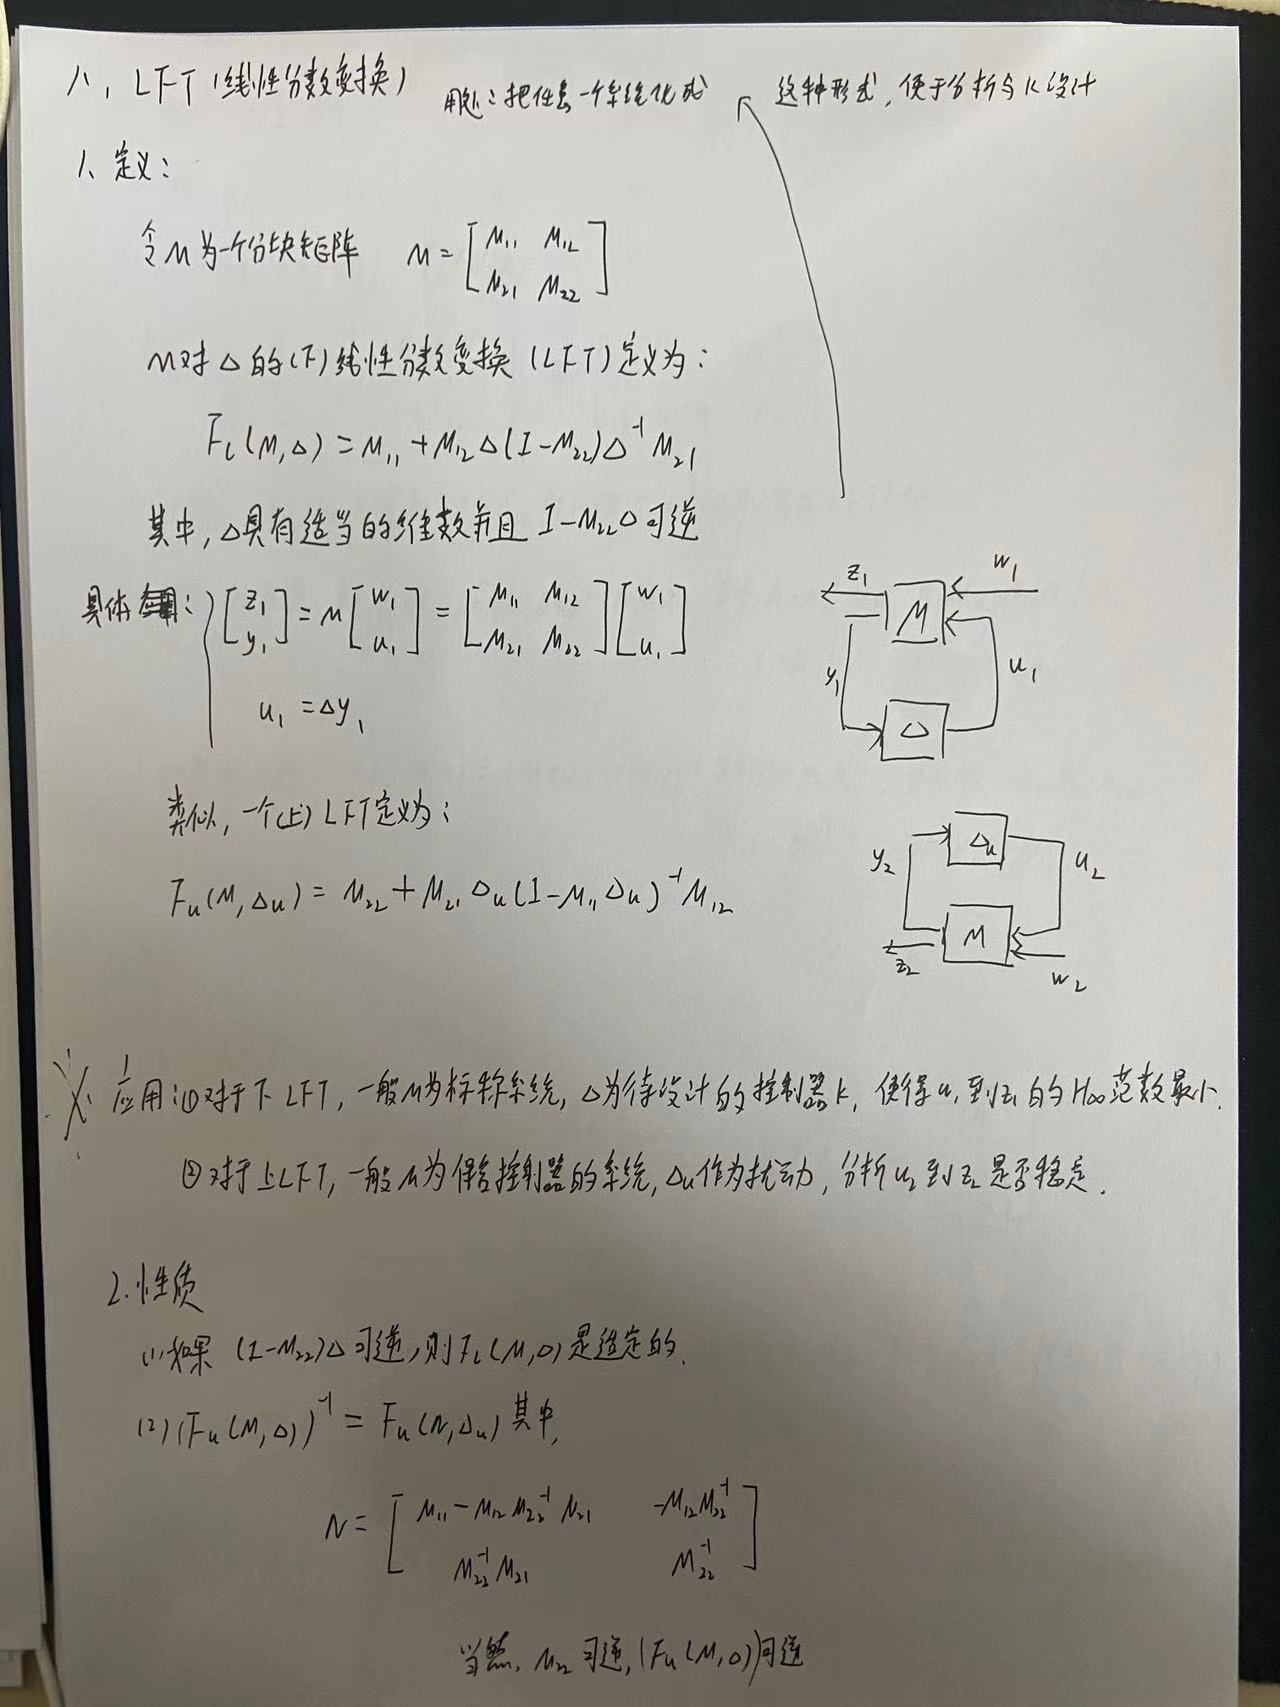 八、LFT(线性分数变换) 用处:把任意一个系统化成 这种形式,便于分析与K设计
1、定义:
令M为一个分块矩阵 M = [M₁₁ M₁₂
M₂₁ M₂₂]
M对Δ的(下)线性分数变换(LFT)定义为:
F_l(M,Δ) = M₁₁ + M₁₂Δ(I-M₂₂)Δ⁻¹M₂₁
其中,Δ具有适当的维数并且 I-M₂₂Δ可逆
具体: { [z₁ y₁] = M [w₁ u₁] = [M₁₁ M₁₂
M₂₁ M₂₂] [w₁ u₁]
u₁ = Δy₁
z₁ M w₁
y₁ u₁
Δ
类似,一个(上)LFT定义为:
F_u(M,Δu) = M₂₂ + M₂₁Δu(I-M₁₁Δu)⁻¹M₁₂
y₂ Δu u₂
M
z₂ w₂
※ 应用:①对于下LFT,一般M为标称系统,Δ为待设计的控制器K,使得u₁到z₁的H∞范数最小.
②对于上LFT,一般M为保含控制器的系统,Δu作为扰动,分析u₂到z₂是否稳定.
2.性质
(1)如果 (I-M₂₂)Δ可逆,则F_l(M,Δ)是适定的.
(2)(F_u(M,Δ))⁻¹ = F_u(N,Δu)其中,
N = [M₁₁-M₁₂M₂₂⁻¹N₂₁ -M₁₂M₂₂⁻¹
M₂₂⁻¹M₂₁ M₂₂⁻¹]
当然,M₂₂可逆,(F_u(M,Δ))可逆